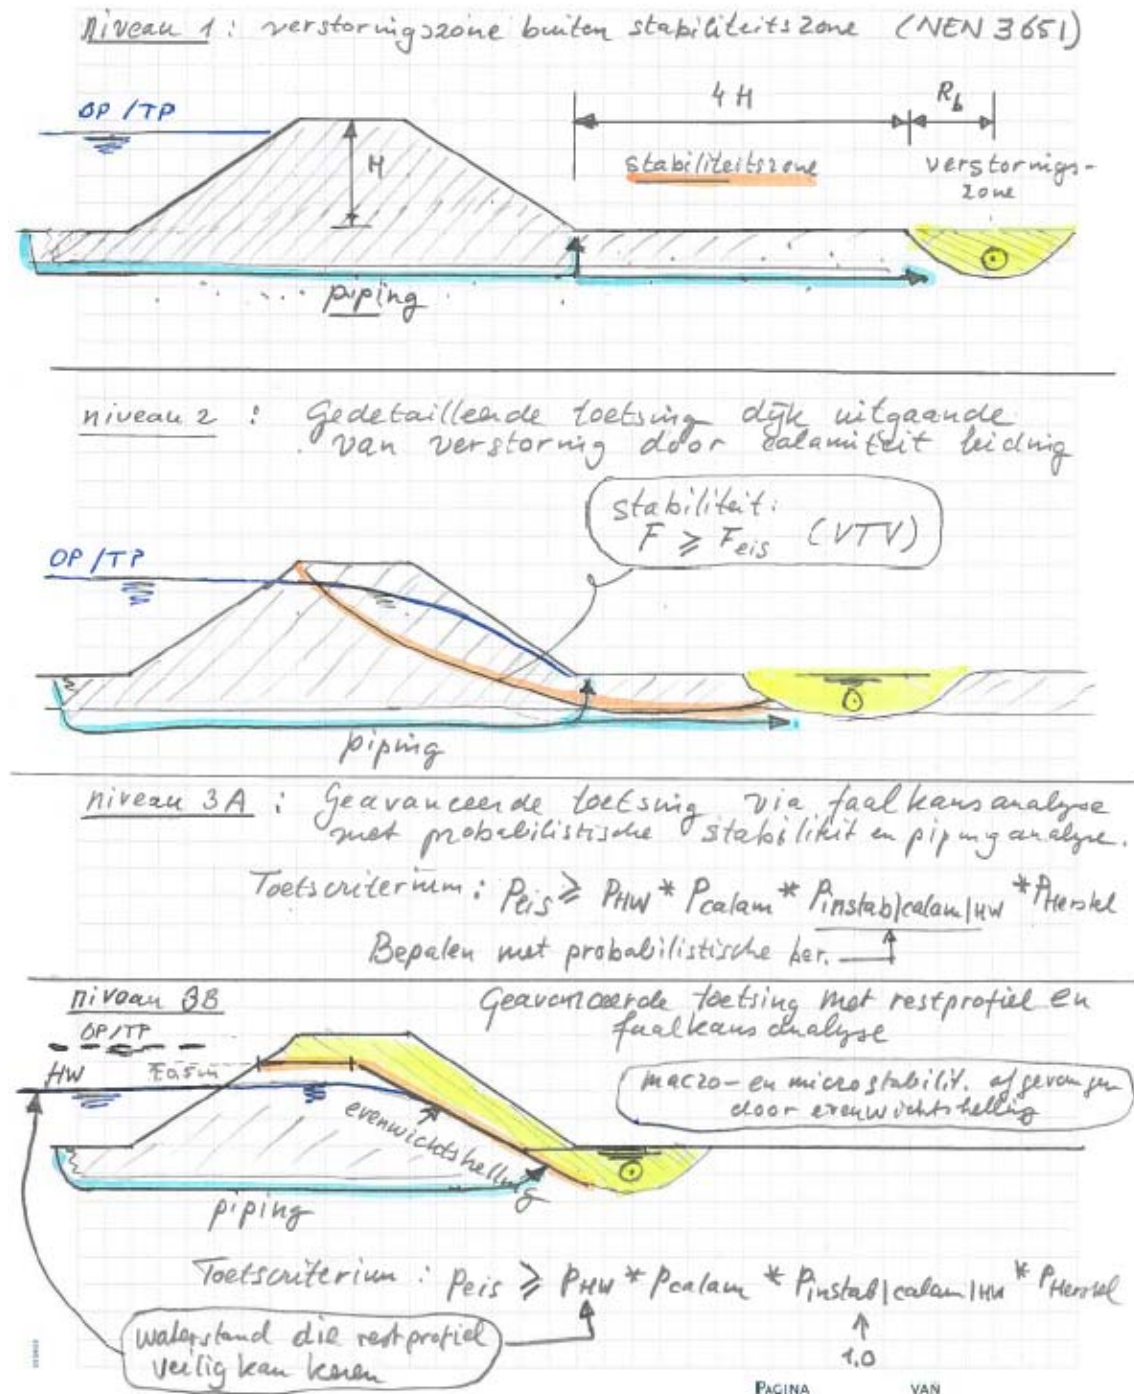 Niveau 1 : verstoringszone buiten stabiliteitszone (NEN 3651)
OP/TP
4H
Rb
H
stabiliteitszone
verstorings-
zone
piping
niveau 2 : Gedetailleerde toetsing dijk uitgaande
van verstoring door calamiteit leiding
stabiliteit:
F ⩾ Feis (VTV)
OP/TP
piping
niveau 3A : Geavanceerde toetsing via faalkansanalyse
met probabilistische stabiliteit en piping analyse.
Toetscriterium : Peis ⩾ PHW * Pcalam * Pinstab|calam|HW * PHerstel
Bepalen met probabilistische ber.
niveau 3B
Geavanceerde toetsing met restprofiel en
faalkansanalyse
OP/TP
HW
0,5m
macro- en microstabilit. afgevangen
door evenwichtshelling
evenwichtshelling
piping
Toetscriterium : Peis ⩾ PHW * Pcalam * Pinstab|calam|HW * PHerstel
waterstand die restprofiel
veilig kan keren
1,0
PAGINA VAN